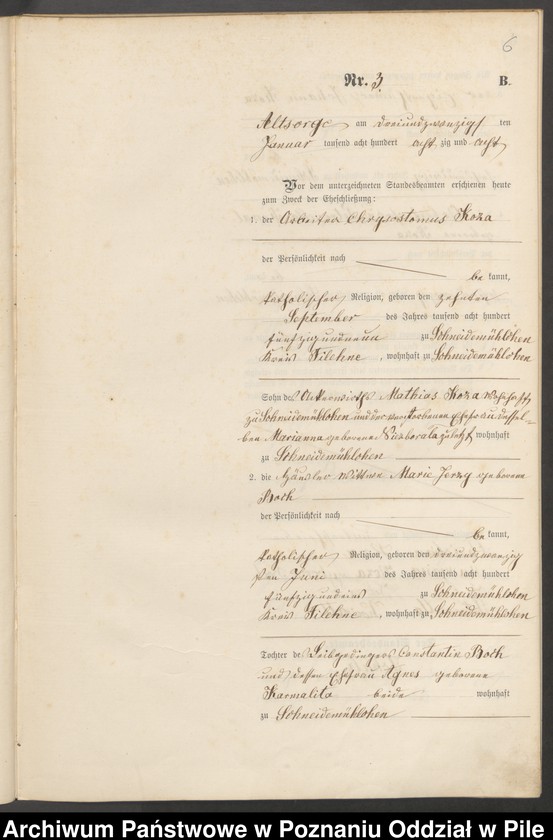 6
Nr. 3
B.
Altsorge am dreiundzwanzigsten
Januar tausend acht hundert achtzig und acht
Vor dem unterzeichneten Standesbeamten erschienen heute
zum Zweck der Eheschließung:
1. der Arbeiter Chrysostomus Koza
der Persönlichkeit nach
be kannt,
katholischer Religion, geboren den zehnten
September des Jahres tausend acht hundert
fünfzig und neun zu Schneidemühlchen
Kreis Filehne, wohnhaft zu Schneidemühlchen
Sohn des Ackerwirths Mathias Koza wohnhaft
zu Schneidemühlchen und der verstorbenen Ehefrau dessel-
ben Marianna geborene zuletzt wohnhaft
zu Schneidemühlchen
2. die Häusler Wittwe Marie Jerzy geborene
Roch
der Persönlichkeit nach
be kannt,
katholischer Religion, geboren den dreiundzwanzig
sten Juni des Jahres tausend acht hundert
fünfzig und eins zu Schneidemühlchen
Kreis Filehne, wohnhaft zu Schneidemühlchen
Tochter des Leibgedingers Constantin Roch
und dessen Ehefrau Agnes geborene
Karmalita beide wohnhaft
zu Schneidemühlchen
Archiwum Państwowe w Poznaniu Oddział w Pile